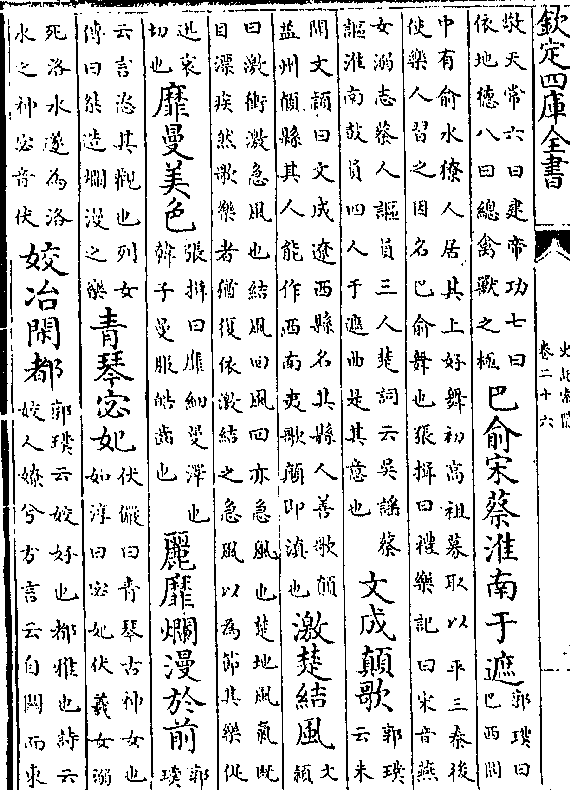 欽定四庫全書
史記索隱
卷二十六
敬天常六曰建帝功七曰
依地德八曰總禽獸之極
巴俞宋蔡淮南于遮
郭璞曰
巴西閬
中有俞水獠人居其上好舞初高祖募取以平三秦後
使樂人習之因名巴俞舞也張揖曰禮樂記曰宋音燕
女溺志蔡人謳員三人楚詞云吳謠蔡
謳淮南鼓員四人于遮曲是其意也
文成顛歌
郭璞
云未
聞文穎曰文成遼西縣名其縣人善歌顛
益州顛縣其人能作西南夷歌顛即滇也
激楚結風
文
穎
曰激衝激急風也結風回風回亦急風也楚地風氣既
自漂疾然歌樂者猶復依激結之急風以為節其樂促
迅哀
切也
靡曼美色
張揖曰靡細曼澤也
韓子曼服皓齒也
麗靡爛漫於前
郭
璞
云言恣其觀也列女
傳曰桀造爛漫之樂
青琴宓妃
伏儼曰青琴古神女也
如淳曰宓妃伏羲女溺
死洛水遂為洛
水之神宓音伏
姣冶閑都
郭璞云姣好也都雅也詩云
姣人嫽兮方言云自關而東